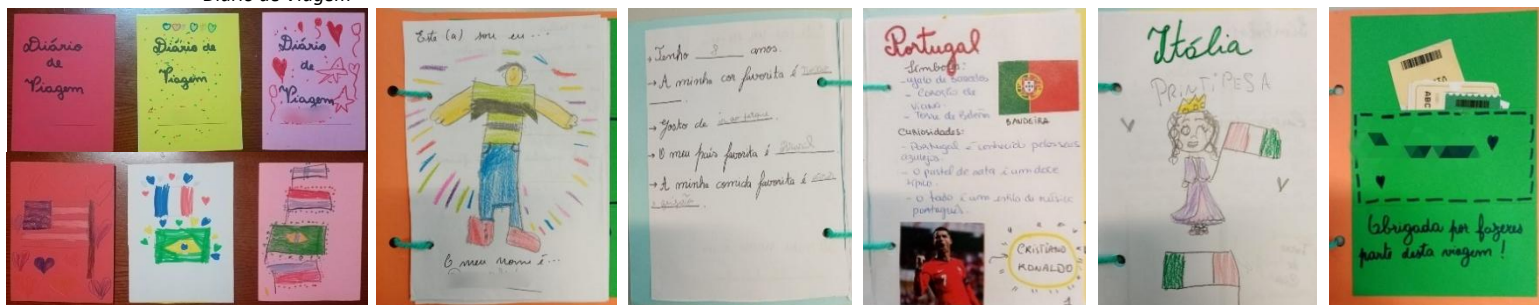 Diário de Viagem
Diário
de
Viagem
Diário de
Viagem
Diário
de
Viagem
Este (a) sou eu...
O meu nome é...
→ Tenho 8 anos.
→ A minha cor favorita é
→ Gosto de
→ O meu país favorito é
→ A minha comida favorita é
Portugal
Símbolos:
- Galo de Barcelos
- Coração de
Viana
- Torre de Belém
BANDEIRA
Curiosidades:
- Portugal é conhecido pelos seus
azulejos.
- O pastel de nata é um doce
típico.
- O fado é um estilo de música
português.
CRISTIANO
RONALDO
7
1
Itália
PRINTIPESA
ABC
Obrigada por fazeres
parte desta viagem!